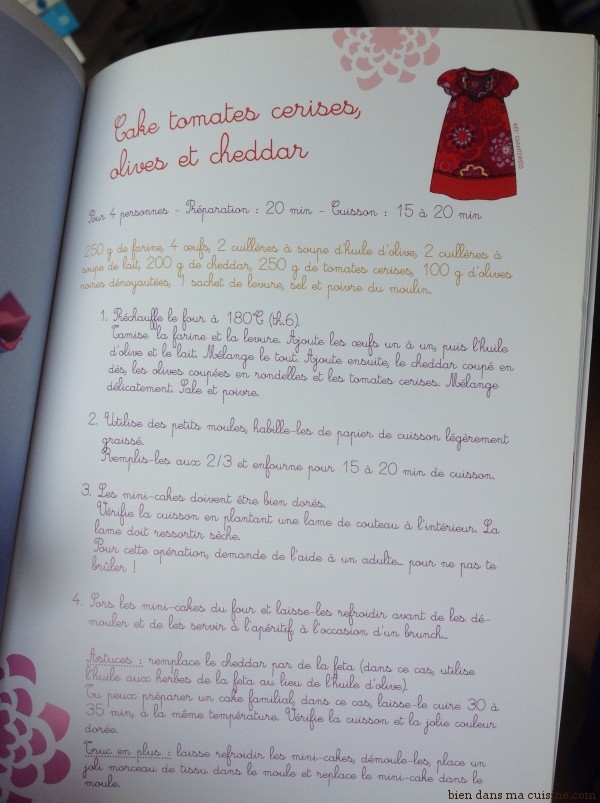 Cake tomates cerises,
olives et cheddar
Pour 4 personnes - Préparation : 20 min - Cuisson : 15 à 20 min
250 g de farine, 4 œufs, 2 cuillères à soupe d'huile d'olive, 2 cuillères à
soupe de lait, 200 g de cheddar, 250 g de tomates cerises, 100 g d'olives
noires dénoyautées, 1 sachet de levure, sel et poivre du moulin.
1. Réchauffe le four à 180°C (th.6).
Tamise la farine et la levure. Ajoute les œufs un à un, puis l'huile
d'olive et le lait. Mélange le tout. Ajoute ensuite, le cheddar coupé en
dés, les olives coupées en rondelles et les tomates cerises. Mélange
délicatement. Sale et poivre.
2. Utilise des petits moules, habille-les de papier de cuisson légèrement
graissé.
Remplis-les aux 2/3 et enfourne pour 15 à 20 min de cuisson.
3. Les mini-cakes doivent être bien dorés.
Vérifie la cuisson en plantant une lame de couteau à l'intérieur. La
lame doit ressortir sèche.
Pour cette opération, demande de l'aide à un adulte... pour ne pas te
brûler !
4. Sors les mini-cakes du four et laisse-les refroidir avant de les dé-
mouler et de les servir à l'apéritif, à l'occasion d'un brunch...
Astuces : remplace le cheddar par de la feta (dans ce cas, utilise
l'huile aux herbes de la feta au lieu de l'huile d'olive).
Tu peux préparer un cake familial, dans ce cas, laisse-le cuire 30 à
35 min, à la même température. Vérifie la cuisson et la jolie couleur
dorée.
Truc en plus : laisse refroidir les mini-cakes, démoule-les, place un
joli morceau de tissu dans le moule et replace le mini-cake dans le
moule.
bien dans ma cuisine.com